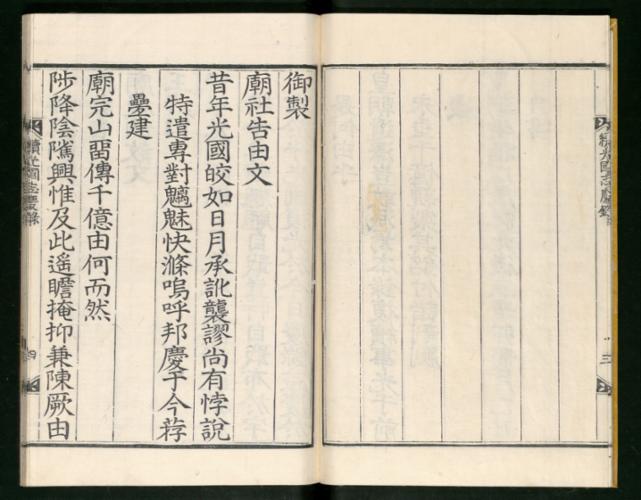 御製
廟社告由文
昔年光國皎如日月承訛襲謬尚有悖說
特遣專對魑魅快滌嗚呼邦慶于今荐
疊建
廟完山留傳千億由何而然
陟降陰隲興惟及此遙瞻掩抑兼陳厥由
續光國志慶錄
四
續光國志慶錄
三